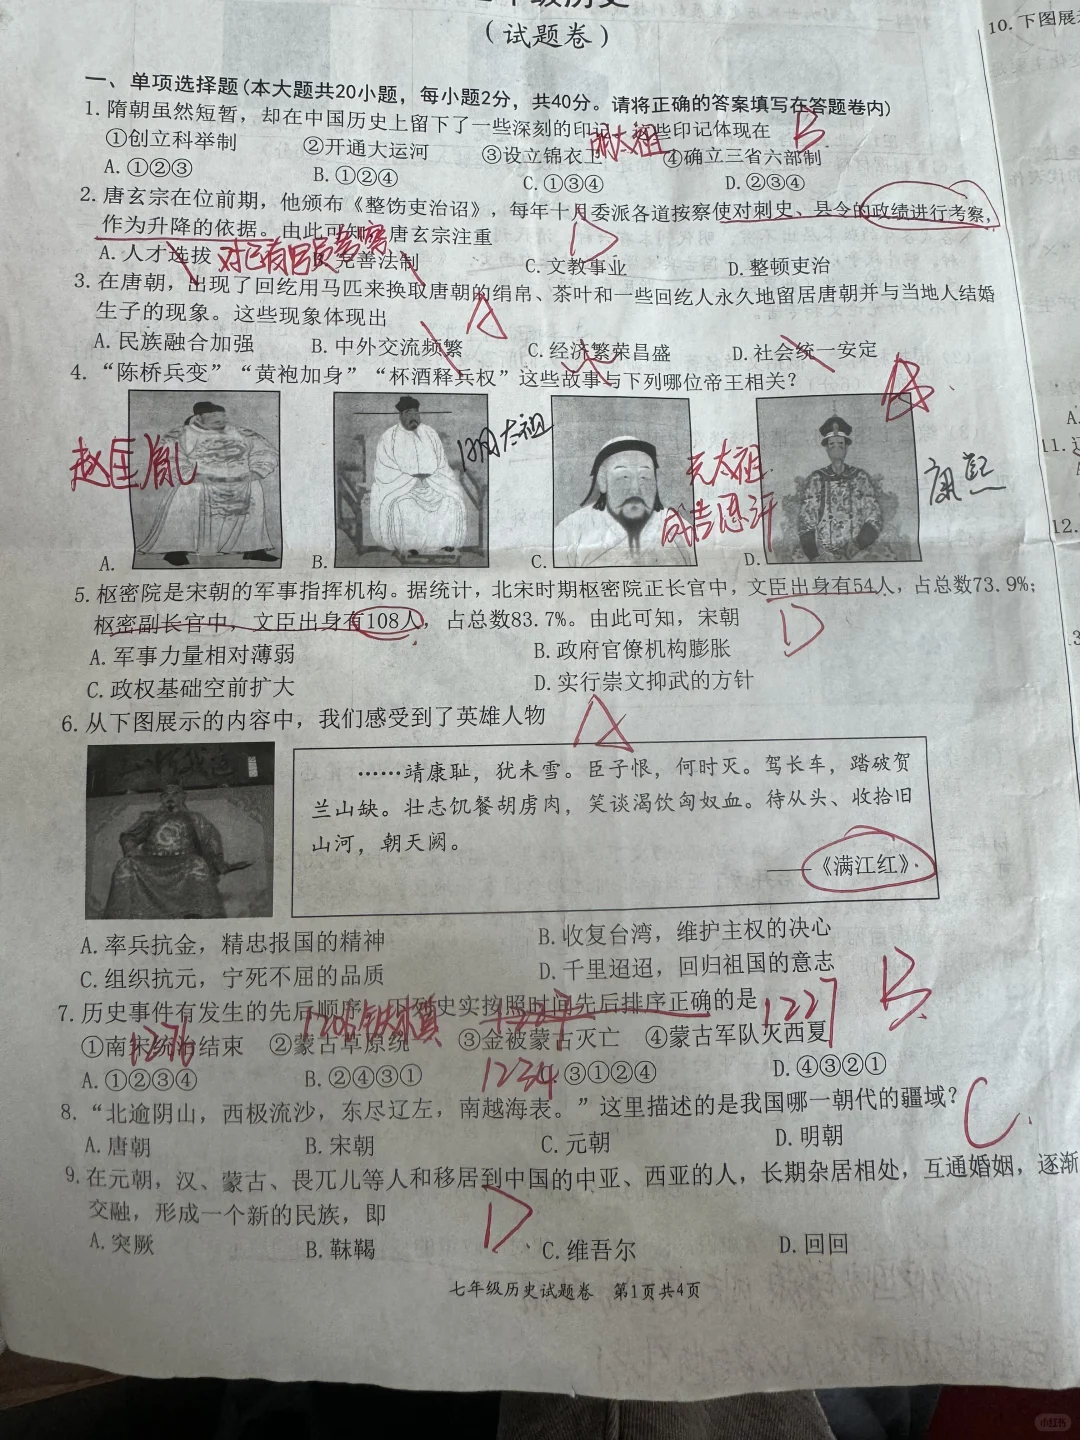 年级历史
（试题卷）
一、单项选择题(本大题共20小题，每小题2分，共40分。请将正确的答案填写在答题卷内)
1. 隋朝虽然短暂，却在中国历史上留下了一些深刻的印记 些印记体现在 B
①创立科举制 ②开通大运河 ③设立锦衣卫 明太祖 ④确立三省六部制
A. ①②③ B. ①②④ C. ①③④ D. ②③④
2. 唐玄宗在位前期，他颁布《整饬吏治诏》，每年十月委派各道按察使对刺史、县令的政绩进行考察，
作为升降的依据。由此可知 唐玄宗注重 D
A. 人才选拔 对已有官员考察 B. 完善法制 C. 文教事业 D. 整顿吏治
3. 在唐朝，出现了回纥用马匹来换取唐朝的绢帛、茶叶和一些回纥人永久地留居唐朝并与当地人结婚
生子的现象。这些现象体现出 A
A. 民族融合加强 B. 中外交流频繁 C. 经济繁荣昌盛 D. 社会统一安定
4. “陈桥兵变”“黄袍加身”“杯酒释兵权”这些故事与下列哪位帝王相关？ A
赵匡胤 明太祖 元太祖 康熙
成吉思汗
A. B. C. D.
5. 枢密院是宋朝的军事指挥机构。据统计，北宋时期枢密院正长官中，文臣出身有54人，占总数73.9%；
枢密副长官中，文臣出身有108人，占总数83.7%。由此可知，宋朝 D
A. 军事力量相对薄弱 B. 政府官僚机构膨胀
C. 政权基础空前扩大 D. 实行崇文抑武的方针
6. 从下图展示的内容中，我们感受到了英雄人物 A
……靖康耻，犹未雪。臣子恨，何时灭。驾长车，踏破贺
兰山缺。壮志饥餐胡虏肉，笑谈渴饮匈奴血。待从头、收拾旧
山河，朝天阙。
——《满江红》
A. 率兵抗金，精忠报国的精神 B. 收复台湾，维护主权的决心
C. 组织抗元，宁死不屈的品质 D. 千里迢迢，回归祖国的意志
7. 历史事件有发生的先后顺序 下列史实按照时间先后排序正确的是 B
1276 1206 铁木真 1227
①南宋统治结束 ②蒙古草原统 ③金被蒙古灭亡 ④蒙古军队灭西夏
A. ①②③④ B. ②④③① 1234 C. ③①②④ D. ④③②①
8. “北逾阴山，西极流沙，东尽辽左，南越海表。”这里描述的是我国哪一朝代的疆域？ C
A. 唐朝 B. 宋朝 C. 元朝 D. 明朝
9. 在元朝，汉、蒙古、畏兀儿等人和移居到中国的中亚、西亚的人，长期杂居相处，互通婚姻，逐渐
交融，形成一个新的民族，即 D
A. 突厥 B. 靺鞨 C. 维吾尔 D. 回回
七年级历史试题卷 第1页共4页
10. 下图展
A.
11.
12.
小红书